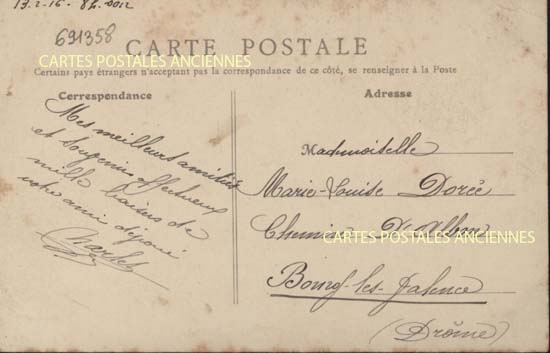 13.2-16- 8h. soir
691358
CARTE POSTALE
CARTES POSTALES ANCIENNES
Certains pays étrangers n'acceptant pas la correspondance de ce côté, se renseigner à la Poste
Correspondance
Mes meilleurs amitiés
et Souvenir affectueux
mille baisers de
votre ami dévoué
Charles
Adresse
Mademoiselle
Marie-Louise Dorée
Chemin d'Alban
CARTES POSTALES ANCIENNES
Bourg-les-Valence
(Drôme)